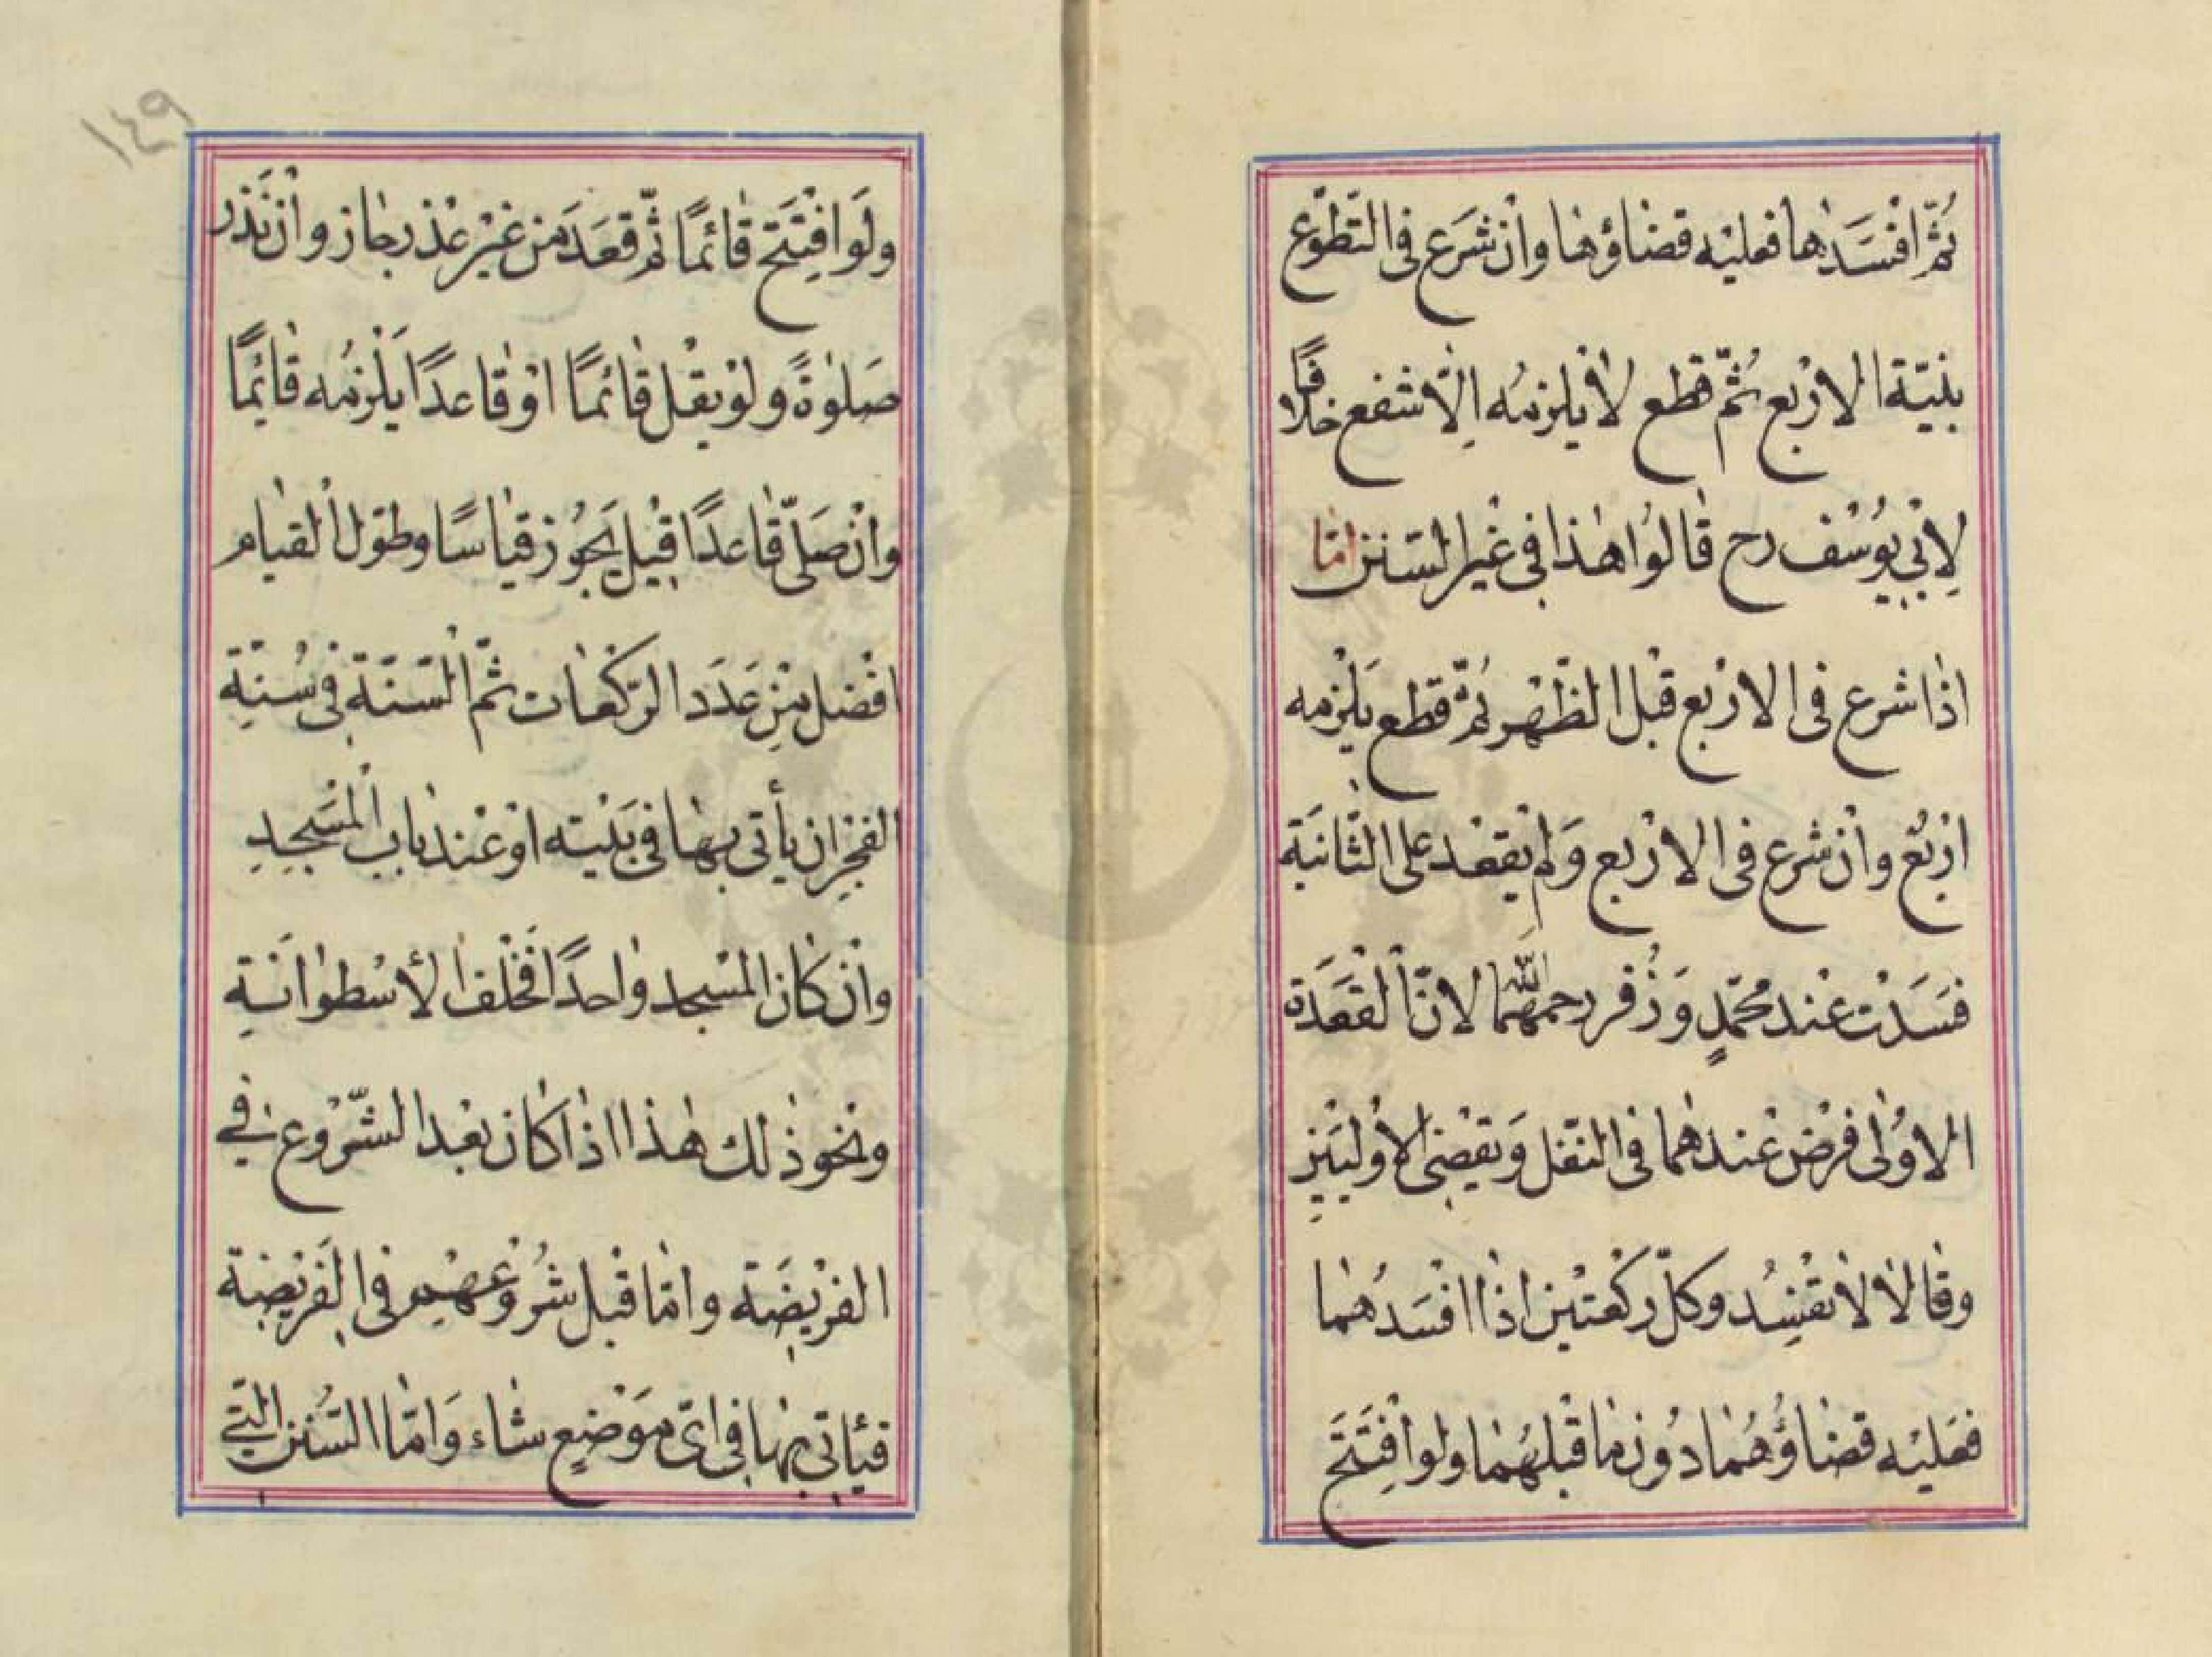 ثُمَّ اَفْسَدَهَا فعليْه قضاؤها وانْ شَرَع فى التّطوّع
بنيّة الارْبع ثُمّ قطع لا يلزمُه اِلّا شفع خلافًا
لِاَبى يوُسُف رح قالوُا هٰذا فى غيْر السّنن امّا
اذا شرع فى الارْبع قبْل الظّهْر ثُمّ قطع يَلْزمه
ارْبعٌ وانْ شرع فى الارْبع وَلم يقعْد على الثّانيَة
فسَدَتْ عنْد محمّدٍ وَزُفر رحمهما الله لانّ القعْدَة
الاوُلٰى فرْض عنْدهما فى النّفل وَيقضِى الاوُليَيْنِ
وقالا لا تفْسُد وكلّ ركْعتيْن اذا افْسَدهُما
فعَليْه قضاؤُهُما دوُن ما قبْلهُما ولو افْتَتَحَ
١٤٩
ولَو افْتِتَح قائمًا ثمّ قعَدَ مَن غيْر عُذْر جاز وانْ نَذَر
صَلٰوةً ولوْ يقُل قائمًا اوْ قاعدًا يَلْزمُه قائِمًا
وانْ صَلّى قاعدًا قيْل يَجُوز قيَاسًا وطوَل القيام
افْضل مِنْ عَدَد الرّكْعات ثمّ السّنّة فى سُنّةِ
الفجْرِ ان يأتى بهَا فى بَيْته اوْ عنْد بابِ الْمَسْجِدِ
وانْ كان المسْجد واحدًا فَخَلْف الأسْطوانَةِ
ونحْو ذٰلك هٰذا اذا كان بعْد الشّرُوع فى
الفرْيضَة وامّا قبْل شرُوعهِمْ فى الفَرْيضِة
فيأتى بها فى اىّ موَْضعٍ شاء وَامّا السُّنن الّتى